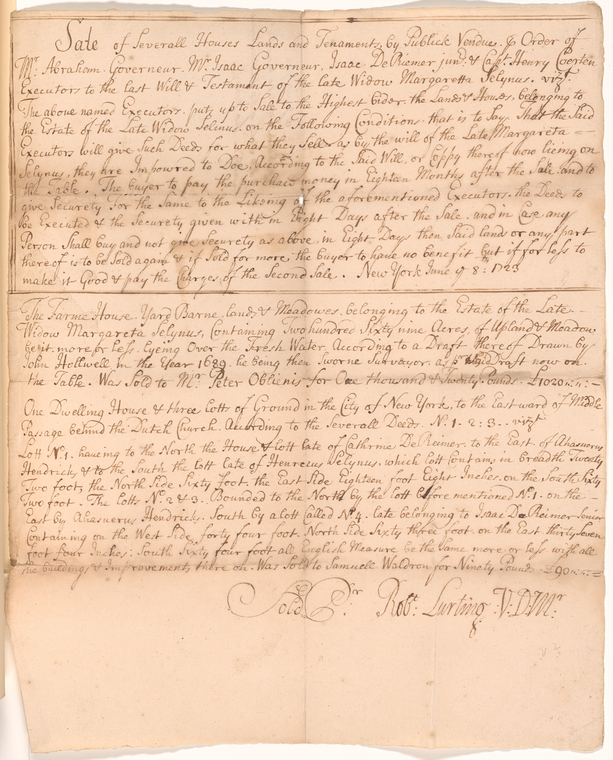 Sale of Severall Houses Lands and Tenaments, by Publick Vendue. ⅌ Order of
Mr. Abraham Governeur. Mrs. Isaac Governeur, Isaac DeRiemer junr. & Capt. Henry Coerten
Executors to the Last Will & Testament of the Late Widow Margaretta Selynus. vizt.
The above named Executors. puts up to Sale to the Highest bider. the Land & Houses, belonging to
the Estate of the Late Widow Selinus, on the Following Conditions, that is to Say. That the Said
Executors will give Such Deeds for what they Sell as by the will of the Late Margareta
Selynus, they are Impowred to Doe, According to the Said Will, or Coppy thereof now lieing on
the Table. The buyer to pay the purchace money in Eighteen Months after the Sale. and to
give Securety for the Same to the Likeing of the aforementioned Executors. the Deeds to
be Executed & the Securety given with in Eight Days after the Sale. and in Case any
Person Shall buy and not give Securety as above, in Eight Days then Said lands or any part
thereof is to be Sold again & if Sold for more, the buyer to have no benefit but if for less to
make it Good & pay the Charges of the Second Sale. New York June ye 8: 1723
The Farme House. Yard Barne, land, & Meadowes, belonging to the Estate of the Late
Widow Margareta Selynus, Containing Two hundred Sixty nine Acres, of Upland & Meadow
be it more or less. Lyeing Over the Fresh Water, According to a Draft thereof Drawn by
John Hollwell in the Year 1689. he being then Sworne Surveyor. as ⅌ Said Draft now on
the Table. Was Sold to Mr. Peter Oblienis for One thousand & Twenty Pounds. £1020:=:=
One Dwelling House & three Lotts of Ground in the City of New York, to the East ward of Midle
Passage behind the Dutch Church. According to the Severall Deeds. No. 1. 2: 3. vizt.
Lott No. 1. haveing to the North the House & Lott Late of Cathrine De Reimer. to the East of Ahasuerus
Hendrick, & to the South the Lott Late of Henrecus Selynus. which Lott Contains in breadth Twenty
Two foot, the North Side Sixty foot, the East Side Eighteen foot Eight Inches. on the South Sixty
Two foot. The Lotts No. 2 & 3. Bounded to the North by the Lott before mentioned No. 1. on the
East by Ahasuerus Hendricks. South by a Lott Called No. 4. Late belonging to Isaac De Reimer Senior
Containing on the West Side, forty four foot. North Side Sixty three foot. on the East thirty Seven
foot four Inches: South Sixty four foot all English Measure be the Same more or less with all
the buildings & Improvements there on. Was Sold to Samuell Waldron for Ninety Pound £90:=:=
Sold ⅌r Robt. Lurting. V. D. Mr.